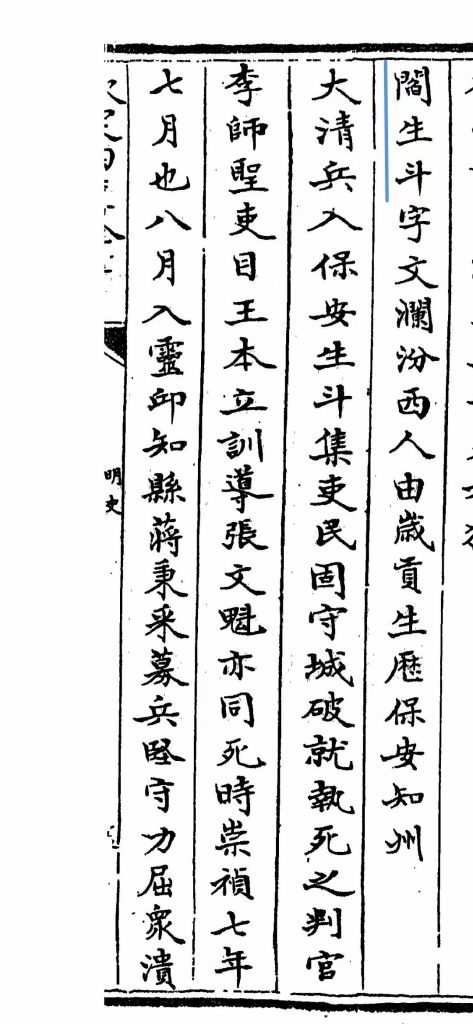 閻生斗字文瀾汾西人由歲貢生歷保安知州
大清兵入保安生斗集吏民固守城破就執死之判官
李師聖吏目王本立訓導張文魁亦同死時崇禎七年
七月也八月入靈邱知縣蔣秉采募兵堅守力屈衆潰
明史